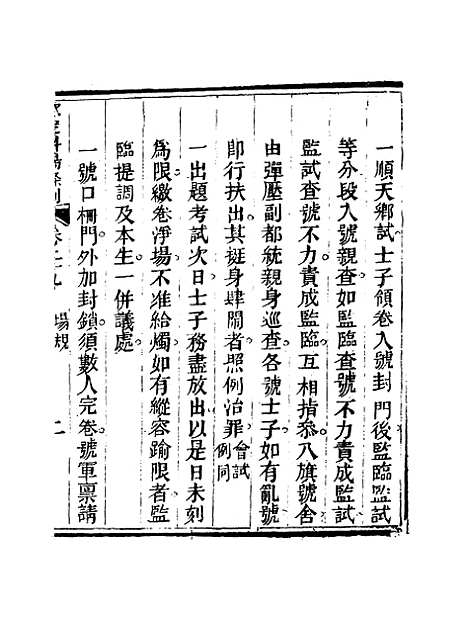 一順天鄉試士子領卷入號封門後監臨監試
等分段入號親查如監臨查號不力責成監試
監試查號不力責成監臨互相指叅八旗號舍
由彈壓副都統親身巡查各號士子如有亂號
卽行扶出其挺身肆鬧者照例治罪會試例同
一出題考試次日士子務盡放出以是日未刻
爲限繳卷淨場不准給燭如有縱容踰限者監
臨提調及本生一併議處
一號口柵門外加封鎖須數人完卷號軍稟請
欽定科場條例 卷二十九 場規 二